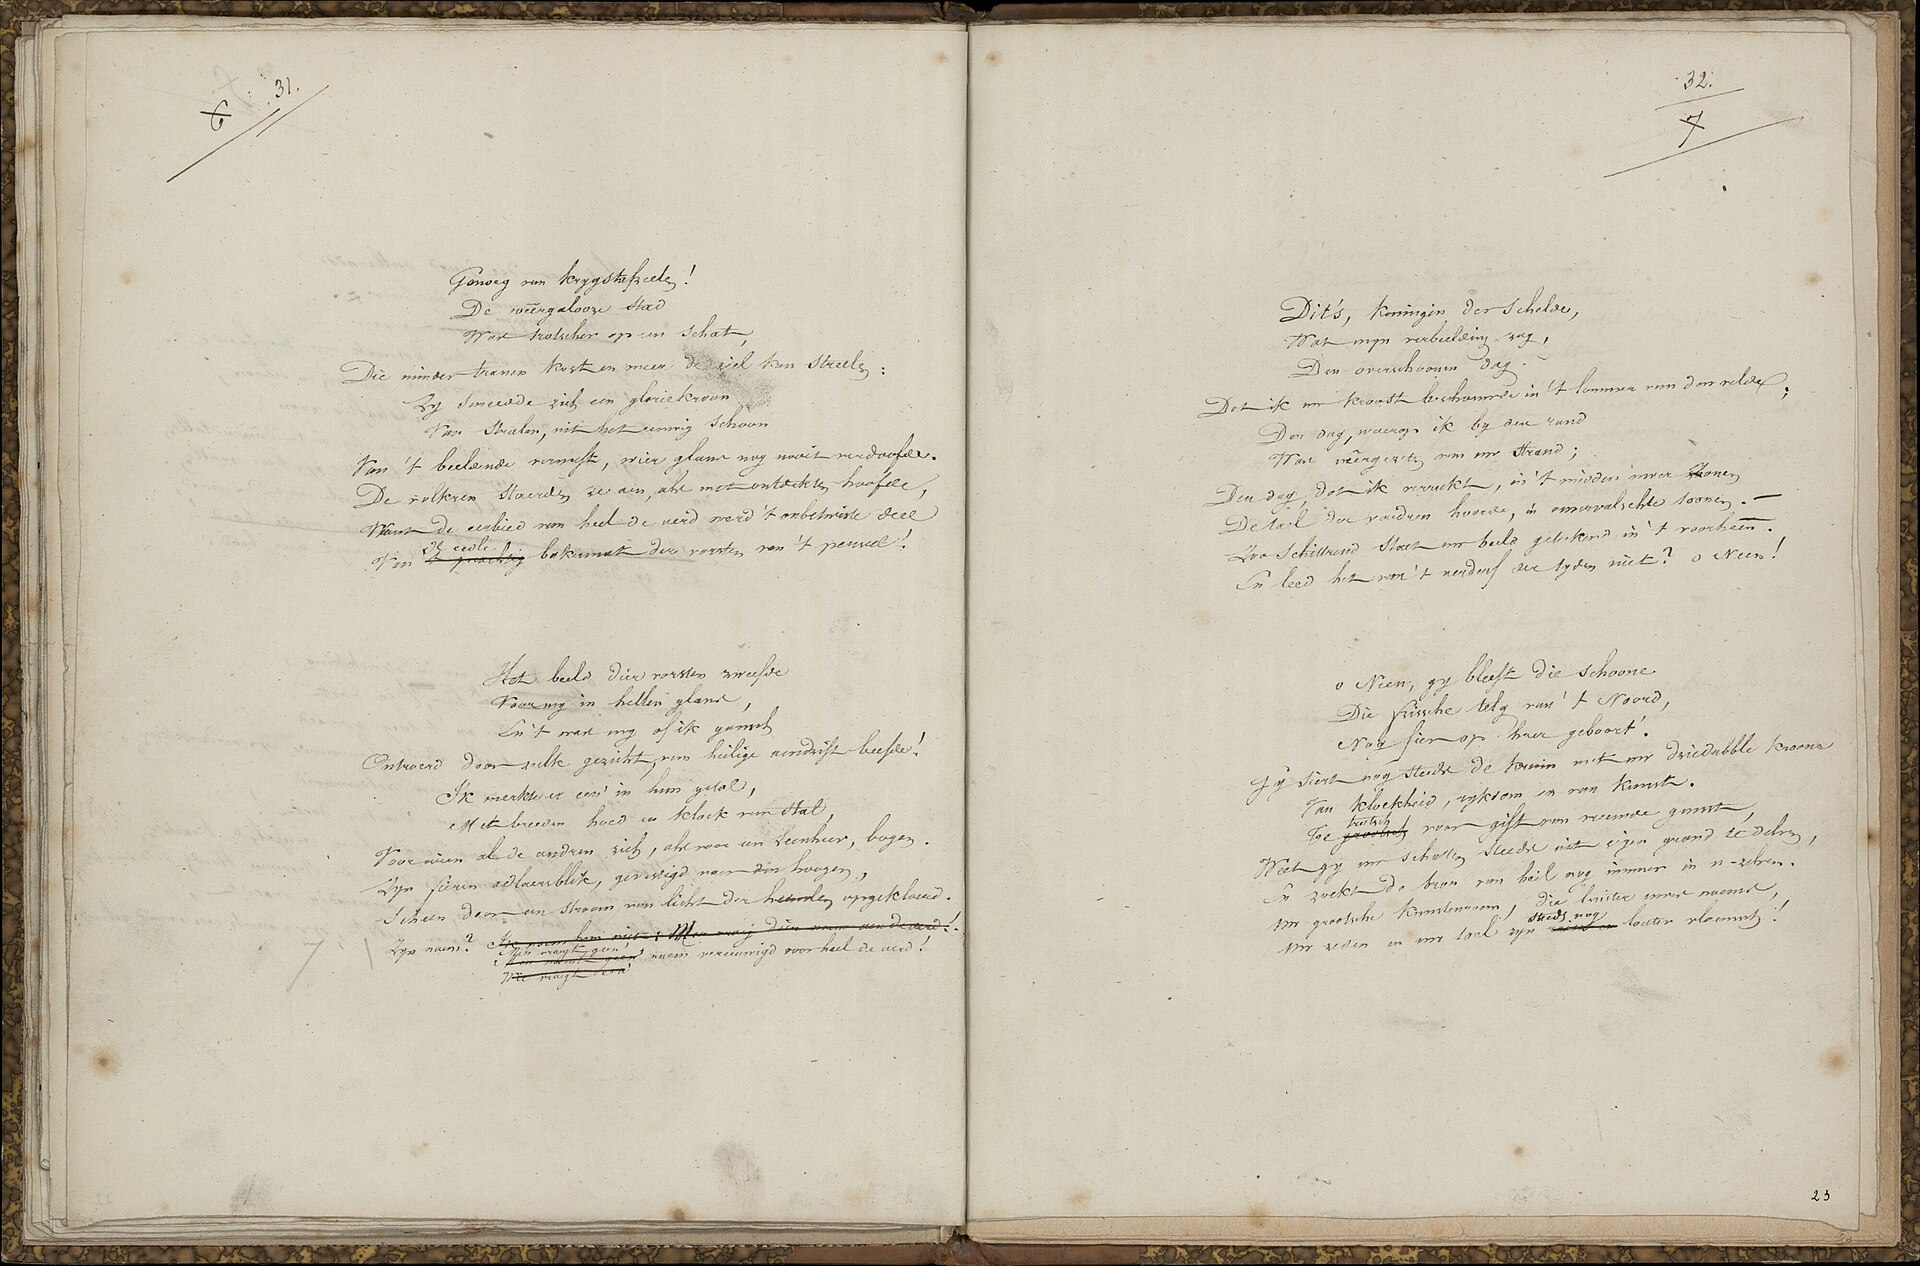 31.
6
Genoeg van krygstafreelen!
De weêrgalooze stad
Was trotscher op een schat,
Die minder tranen kost en meer de ziel kan streelen:
Zy smeedde zich een gloriekroon
Van stralen, uit het eeuwig schoon
Van 't beeldende vernuft, wier glans nog nooit verdoofde.
De volkren staerden ze aen, als met ontdekten hoofde,
Want de eerbied van heel de aerd werd 't onbetwiste deel
de eedle
Van 't prachtig bakermat der vorsten van 't penseel!
Het beeld dier vorsten zweefde
Voor my in hellen glans,
En 't was my of ik gansch
Ontroerd door zulk gezicht, van heilige aendrift beefde!
Ik merkte er een' in hun getal,
Met breeden hoed en klock van stal,
Voor wien al de andren zich, als voor een Leenheer, bogen.
Zyn fieren adlaersblik, gevestigd naer den hoogen,
Scheen door een stroom van licht der heemlen opgeklaerd.
Zyn naem? Ik noem hem niet: Men vraeg' dien naem aen de aerd!
Men vraegt geen' naem vereeuwigd voor heel de aerd!
Men noemt geen'
Wie vraegt een'
32.
7
Dit's, koningin der Schelde,
Wat myn verbeelding zag,
Den overschoonen dag
Dat ik uw kroost beschouwde in 't lommer van den velde;
Den dag, waerop ik by den rand
Was neêrgezeten van uw strand;
Den dag, dat ik verrukt, in 't midden uwer zonen
De tael der vaedren hoorde, in onvervalschte toonen. —
Zoo schittrend staet uw beeld getekend in 't voorheen.
En leed het van 't verderf der tyden niet? o Neen!
o Neen, gy bleeft die schoone
Die frissche telg van 't Noord,
Nog fier op haer geboort'.
Gy siert nog steeds de kruin met uw driedubble kroone
Van kloekheid, rykdom en van kunst.
trotsch
Te grootsch voor gift van vreemde gunst,
Weet gy uw schatten steeds uit eigen grond te delven,
En zoekt de bron van heil nog immer in u-zelven.
Uw grootsche kunstenaren, die luister uwer naemen,
steeds nog
Uw zeden en uw tael zyn louter vlaemsch!
23